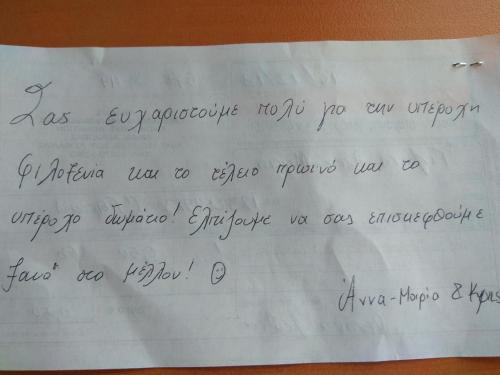 Σας ευχαριστούμε πολύ για την υπέροχη
φιλοξενία και το τέλειο πρωινό και το
υπέροχο δωμάτιο! Ελπίζουμε να σας επισκεφθούμε
ξανά στο μέλλον! ☺
Άννα-Μαρία &